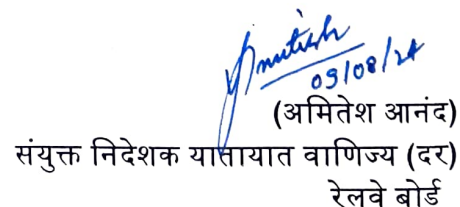 Amitesh
09/08/24
(अमितेश आनंद)
संयुक्त निदेशक यातायात वाणिज्य (दर)
रेलवे बोर्ड